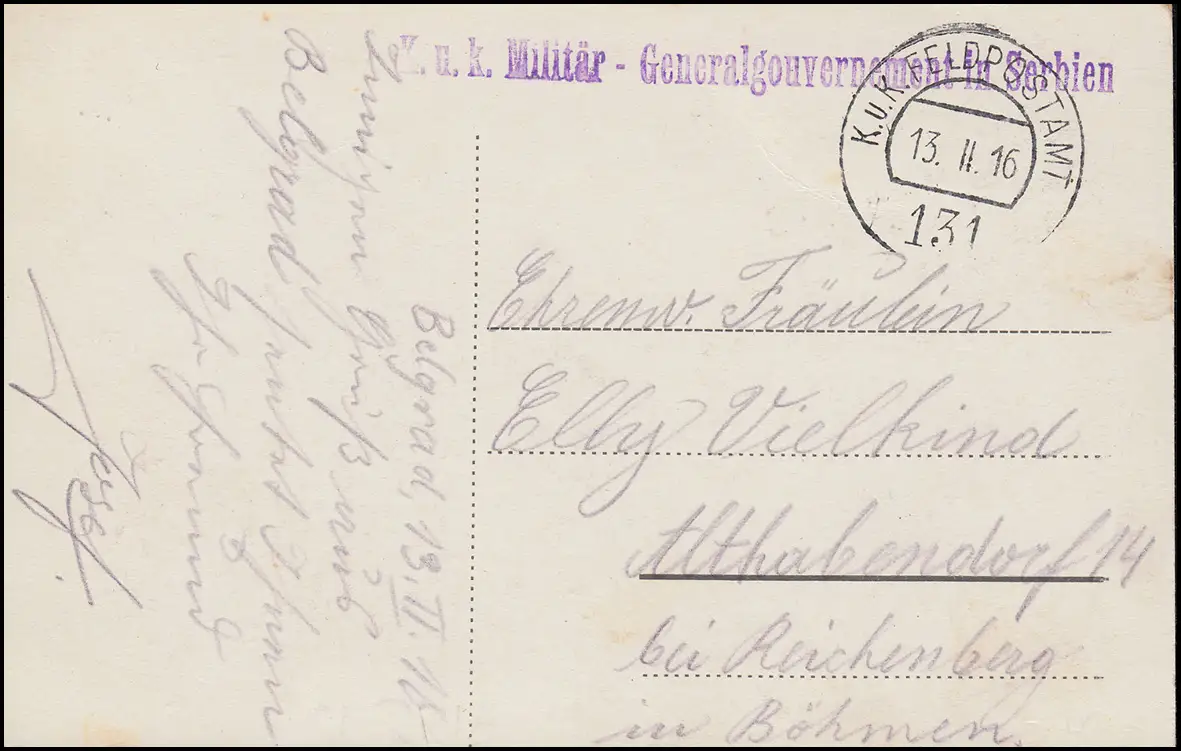 K. u. k. Militär - Generalgouvernement in Serbien
K.u.K. FELDPOSTAMT
13. II. 16
131
Ehrenw. Fräulein
Elly Vielkind
Althabendorf 14
bei Reichenberg
in Böhmen.
Belgrad, 13. II. 16
Innigen Gruß aus
Belgrad sendet Ihnen
Ihr Freund